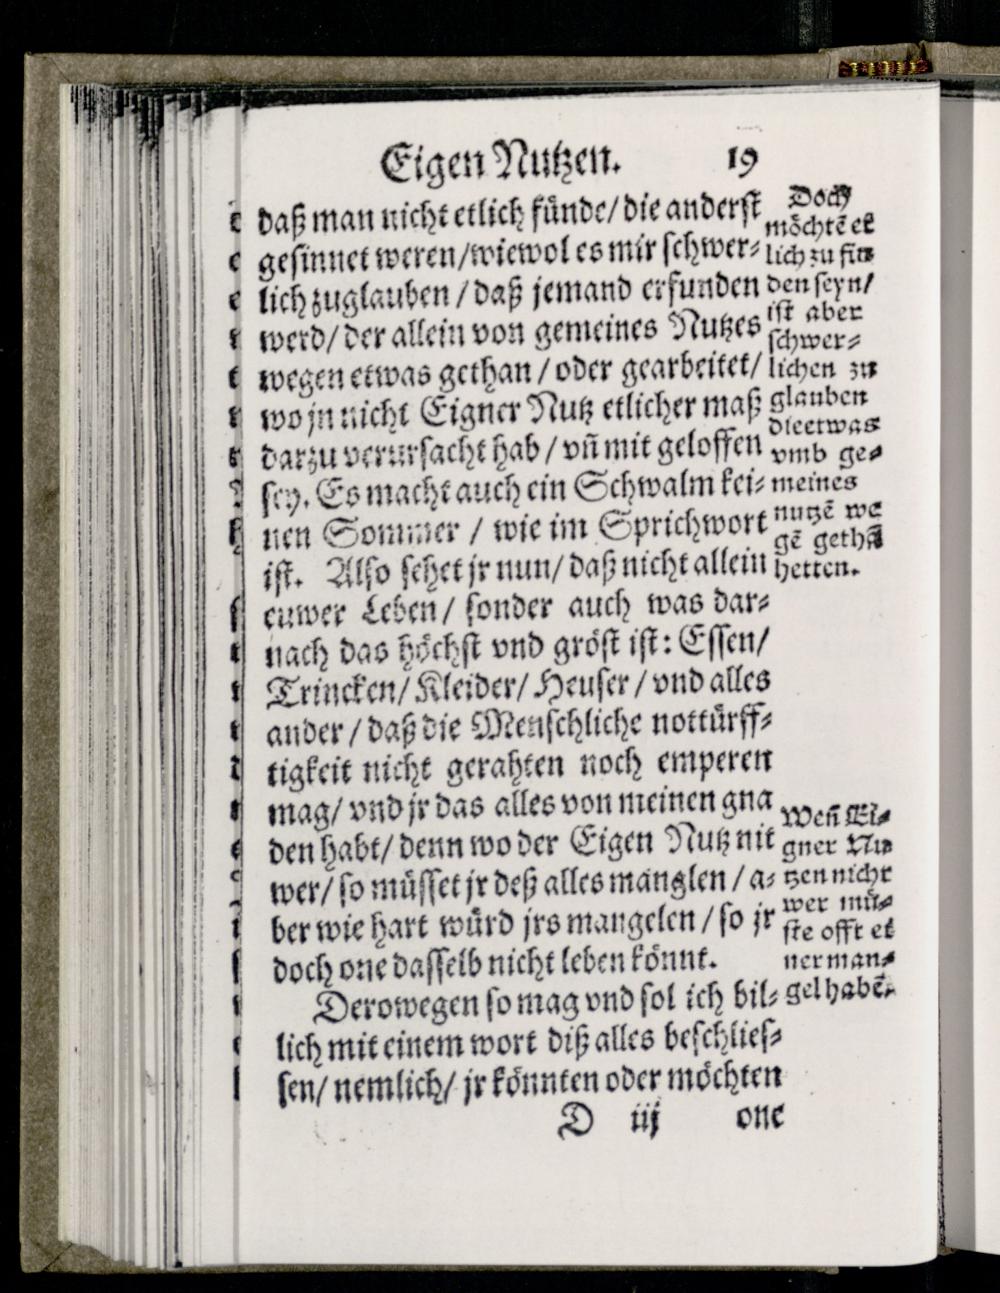 Eigen Nutzen. 19
daß man nicht etlich fünde/ die anderst
gesinnet weren/wiewol es mir schwer⸗
lich zuglauben / daß jemand erfunden
werd/ der allein von gemeines Nutzes
wegen etwas gethan / oder gearbeitet/
wo jn nicht Eigner Nutz etlicher maß
darzu verursacht hab / vñ mit geloffen
sey. Es macht auch ein Schwalm kei⸗
nen Sommer / wie im Sprichwort
ist. Also sehet jr nun/ daß nicht allein
euwer Leben/ sonder auch was dar⸗
nach das höchst vnd gröst ist: Essen/
Trincken/ Kleider/ Heuser / vnd alles
ander / daß die Menschliche nottürff⸗
tigkeit nicht gerahten noch emperen
mag/ vnd jr das alles von meinen gna
den habt/ denn wo der Eigen Nutz nit
wer/ so müsset jr deß alles manglen / a⸗
ber wie hart würd jrs mangelen / so jr
doch one dasselb nicht leben könnt.
Derowegen so mag vnd sol ich bil⸗
lich mit einem wort diß alles beschlies⸗
sen/ nemlich/ jr könnten oder möchten
D iij one
Doch
möchtē et
lich zu fin
den seyn/
ist aber
schwer⸗
lichen zu
glauben
die etwas
vmb ge⸗
meines
nutzē we
gē gethā
hetten.
Weñ Ei⸗
gner Nu
tzen nicht
wer mü⸗
ste offt ei
ner man⸗
gel habē.